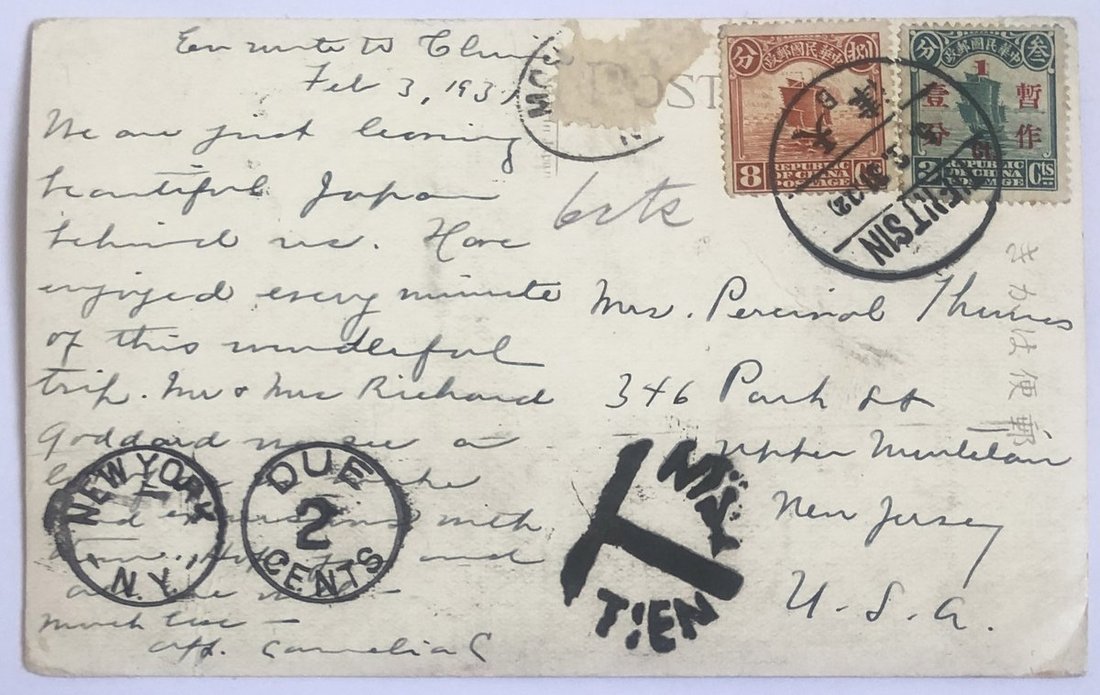 En route to China
Feb 3, 193
We are just leaving
beautiful Japan
behind us. Have
enjoyed every minute
of this wonderful
trip. Mr & Mrs Richard
Goddard
with
and
much love –
aff. Cornelia C
POST
6cts
Mrs. Percival Thomas
346 Park St
Upper Montclair
New Jersey
U.S.A.
きかは便郵
分 政郵國民華中 捌
8 REPUBLIC OF CHINA POSTAGE Cts
分 政郵國民華中 叁
1
暫作
壹分
Ct.
3 REPUBLIC OF CHINA Cts
天津
TIENTSIN
NEW YORK
N.Y.
DUE
2
CENTS
T
TIEN